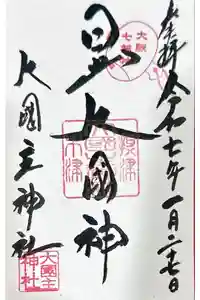 奉拝
令和七年一月二七日
大阪
七福
日出大國神
大國主神社
大國主
神社